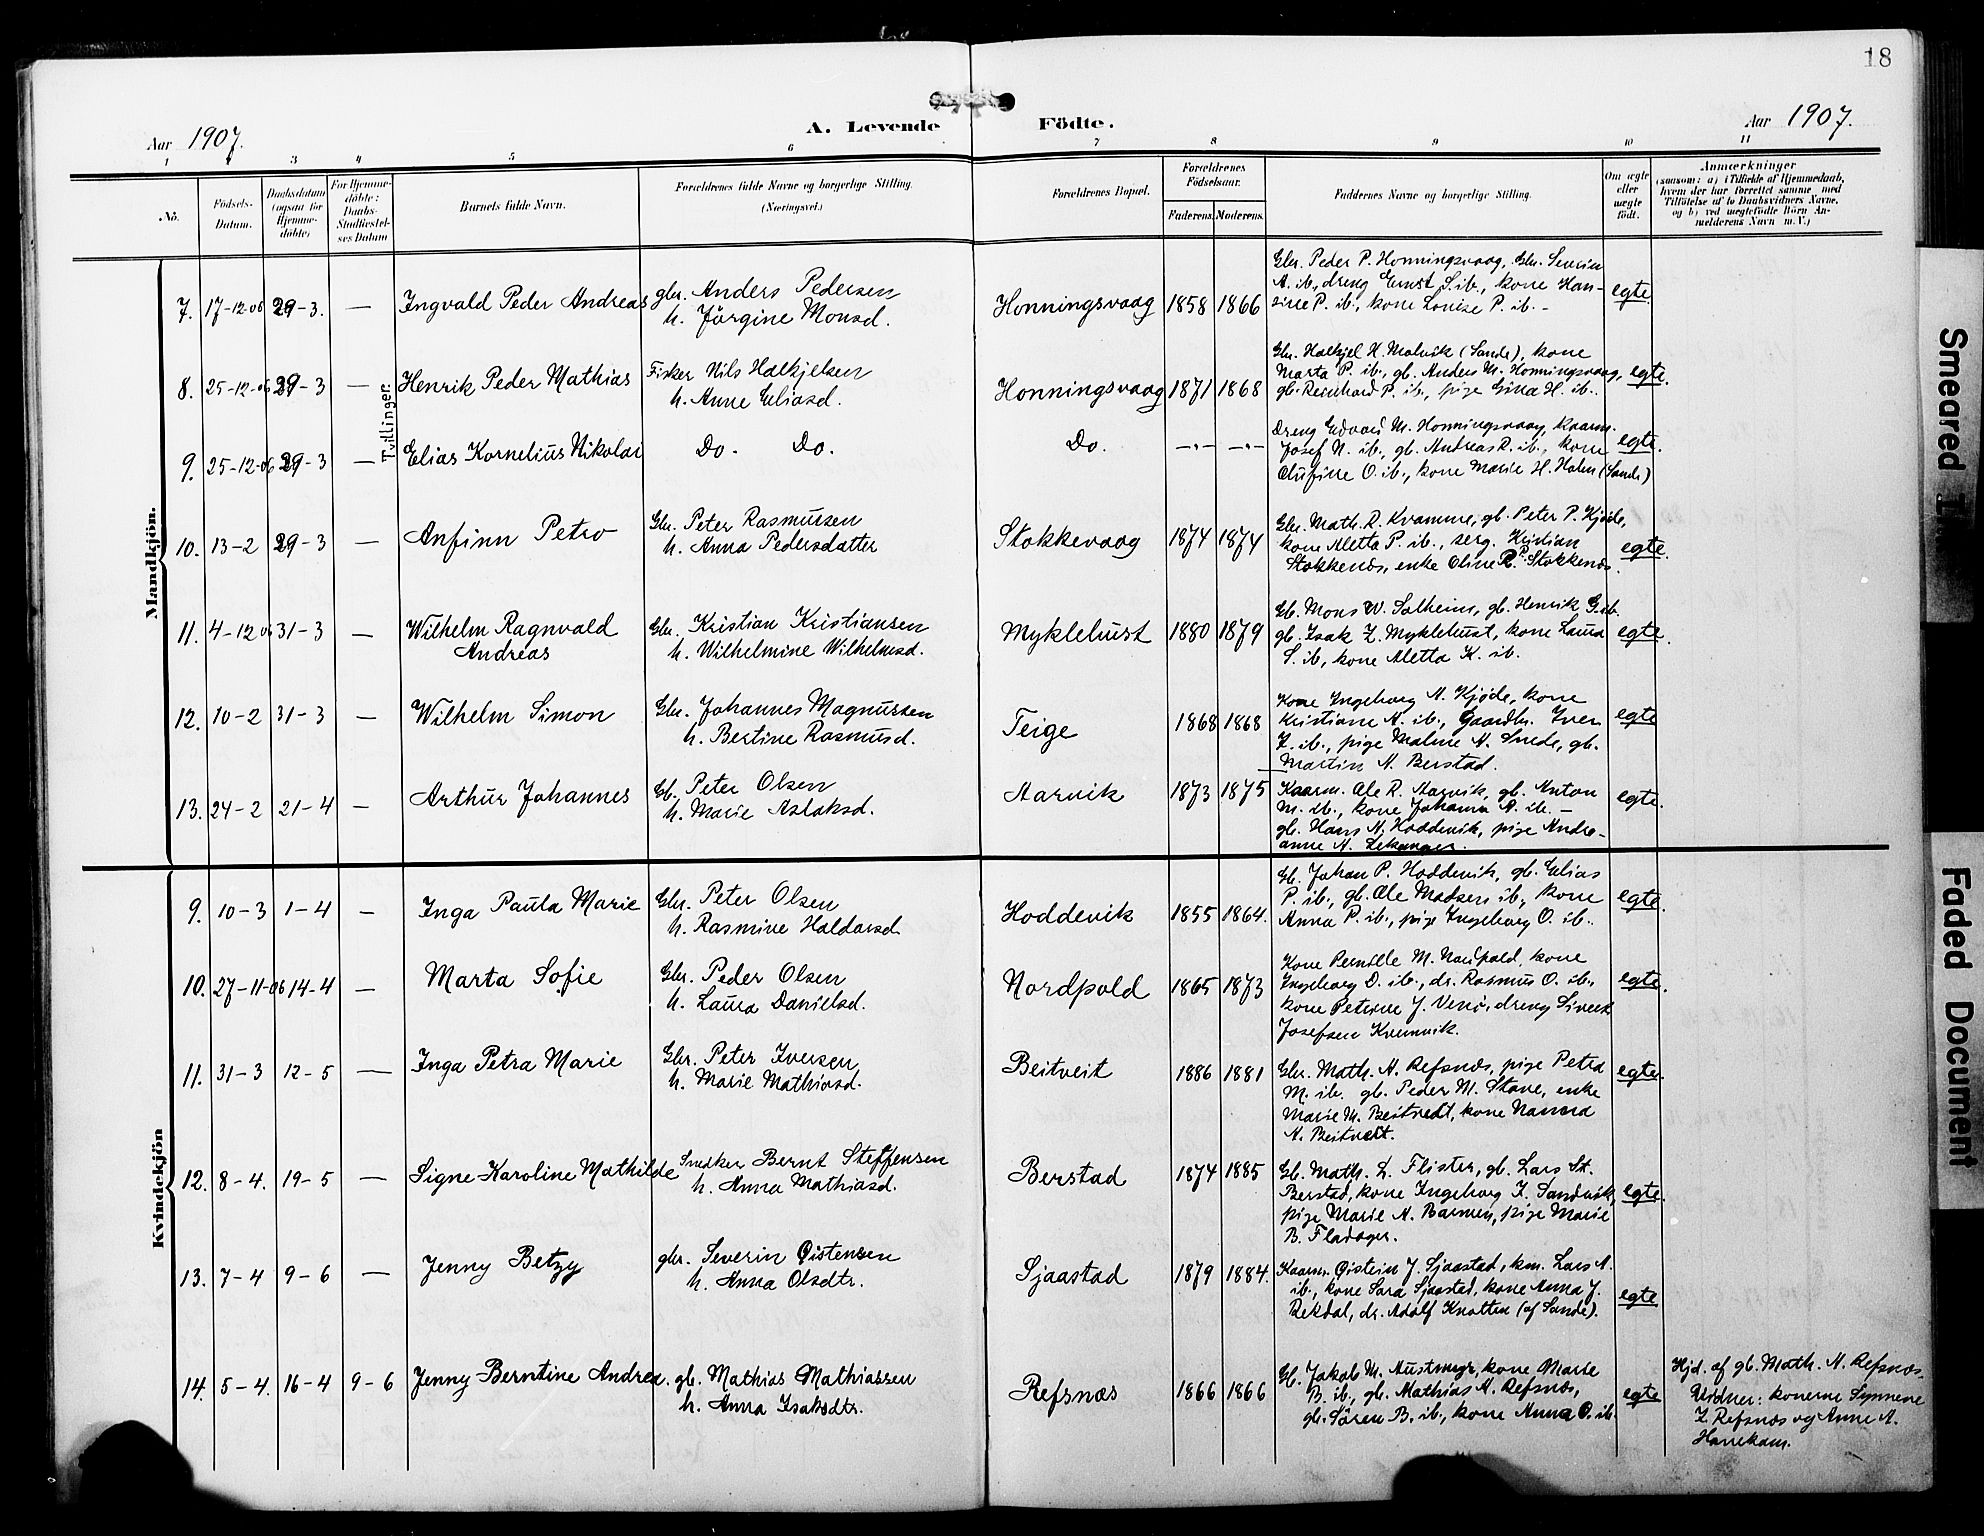 18
Aar 1907.
A. Levende Födte.
Aar 1907.
1 2 3 4 5 6 7 8 9 10 11
No.
Födsels-
Datum.
Daabsdatum
(ogsaa for
Hjemme-
döbte)
For Hjemme-
döbte:
Daabs-
Stadfæstel-
ses Datum
Barnets fulde Navn.
Forældrenes fulde Navne og borgerlige Stilling.
(Næringsvei.)
Forældrenes Bopæl.
Forældrenes
Födselsaar.
Faderens. Moderens.
Faddernes Navne og borgerlige Stilling.
Om ægte
eller
uægte
födt.
Anmærkninger
(saasom: a) i Tilfælde af Hjemmedaab,
hvem der har forrettet samme, med
Tilföielse af to Daabsvidners Navne,
og b) ved uægtefödte Börn An-
melderens Navn m. V.)
Mandkjön.
7. 17-12-06 29-3. — Ingvald Peder Andreas
gbr. Anders Pedersen
h. Jörgine Monsd.
Honningsvaag 1858 1866
Gbr. Peder P. Honningsvaag, Gbr. Severin
A. ib., dreng Ernst S. ib., kone Han-
sine P. ib., kone Louise P. ib. -
egte.
Tvillinger.
8. 25-12-06 29-3 — Henrik Peder Mathias
Fisker Nils Halkjelsen
h. Anne Eliasd.
Honningsvaag 1871 1868
Gbr. Halkjel H. Malvik (Sande), kone
Marta P. ib., gb. Anders M. Honningsvaag,
gb. Reinhard P. ib., pige Gina H. ib..
egte.
9. 25-12-06 29-3 — Elias Kornelius Nikolai
Do. Do.
Do. -"- -"-
Dreng Edvard M. Honningsvaag, kaarm.
Josef N. ib., gb. Andreas R. ib., kone
Olufine O. ib., kone Marie H. Holen (Sande)
egte.
10. 13-2 29-3 — Anfinn Petro
Gbr. Peter Rasmussen
h. Anna Pedersdatter
Stokkevaag 1874 1874
Gbr. Math. R. Kvamme, gb. Peter P. Kjøde,
kone Aletta P. ib., serg. Kristian
Stokkenæs, enke Oline R. P. Stokkenæs.
egte.
11. 4-12 06 31-3 — Wilhelm Ragnvald
Andreas
Gbr. Kristian Kristiansen
h. Wilhelmine Wilhelmsd.
Myklebust 1880 1879
Gb. Mons W. Salheim, gb. Henrik G. ib.
gb. Isak Z. Myklebust, kone Laura
S. ib, kone Aletta K. ib.
egte.
12. 10-2 31-3 — Wilhelm Simon
Gbr. Johannes Magnussen
h. Bertine Rasmusd.
Teige 1868 1868
Kone Ingeborg A. Kjøde, kone
Kristiane A. ib., Gaardbr. Iver
I. ib., pige Maline A. Smede, gb.
Martin A. Berstad.
egte
13. 24-2 21-4 — Arthur Johannes
Gb. Peter Olsen
h. Marie Aslaksd.
Aarvik 1873 1875
Kaarm. Ole R. Aarvik, gb. Anton
M. ib., kone Johanna A. ib. —
gb. Hans A. Hoddevik, pige Andre-
anne A. Lekanger.
egte.
Kvindekjön
9. 10-3 1-4 — Inga Paula Marie
Gbr. Peter Olsen
h. Rasmine Haldorsd.
Hoddevik 1855 1864.
Gb. Johan P. Hoddevik, gb. Elias
P. ib., gb. Ole Madsen ib., kone
Anna P. ib., pige Ingeborg O. ib..
egte.
10. 27-11-06 14-4 — Marta Sofie
Gbr. Peder Olsen
h. Laura Danielsd.
Nordpold 1865 1873
Kone Pernille M. Nordpold, kone
Ingeborg D. ib., dr. Rasmus O. ib.,
kone Peterine J. Venö, dreng Sivert
Josefsen Kvemvik.
egte.
11. 31-3 12-5 — Inga Petra Marie
Gbr. Peter Iversen
h. Marie Mathiasd.
Beitveit 1886 1881
Gbr. Math. A. Refsnæs, pige Petra
M. ib. gb. Peder M. Stave, enke
Marie M. Beitvedt, kone Nanna
A. Beitveit.
egte.
12. 8-4. 19-5 — Signe Karoline Mathilde
Snedker Bernt Steffensen
h. Anna Mathiasd.
Berstad 1874 1885
Gb. Math. L. Flister, gb. Lars St.
Berstad, kone Ingeborg I. Sandvik,
pige Marie A. Barmen, pige Marie
B. Fladager.
egte.
13. 7-4 9-6 — Jenny Betzy
gbr. Severin Øistensen
h. Anna Olsdtr.
Sjaastad 1879 1884.
Kaarm. Øistein J. Sjaastad, km. Lars A.
ib., kone Sara Sjaastad, kone Anna J.
Rekdal, dr. Adolf Knotten (af Sande).
egte
14. 5-4. 16-4 9-6 Jenny Berntine Andrea.
gb. Mathias Mathiassen
h. Anna Isaksdtr.
Refsnæs 1866 1866
Gb. Jakob M. Austmyr, kone Marie
B. ib., gb. Mathias A. Refsnæs,
gb. Søren B. ib., kone Anna O. ib.
egte
Hjd. af gb. Math. A. Refsnæs.
Vidner: konerne Synneve
Z. Refsnæs og Anne A.
Hanekam.
Smeared
Faded Document